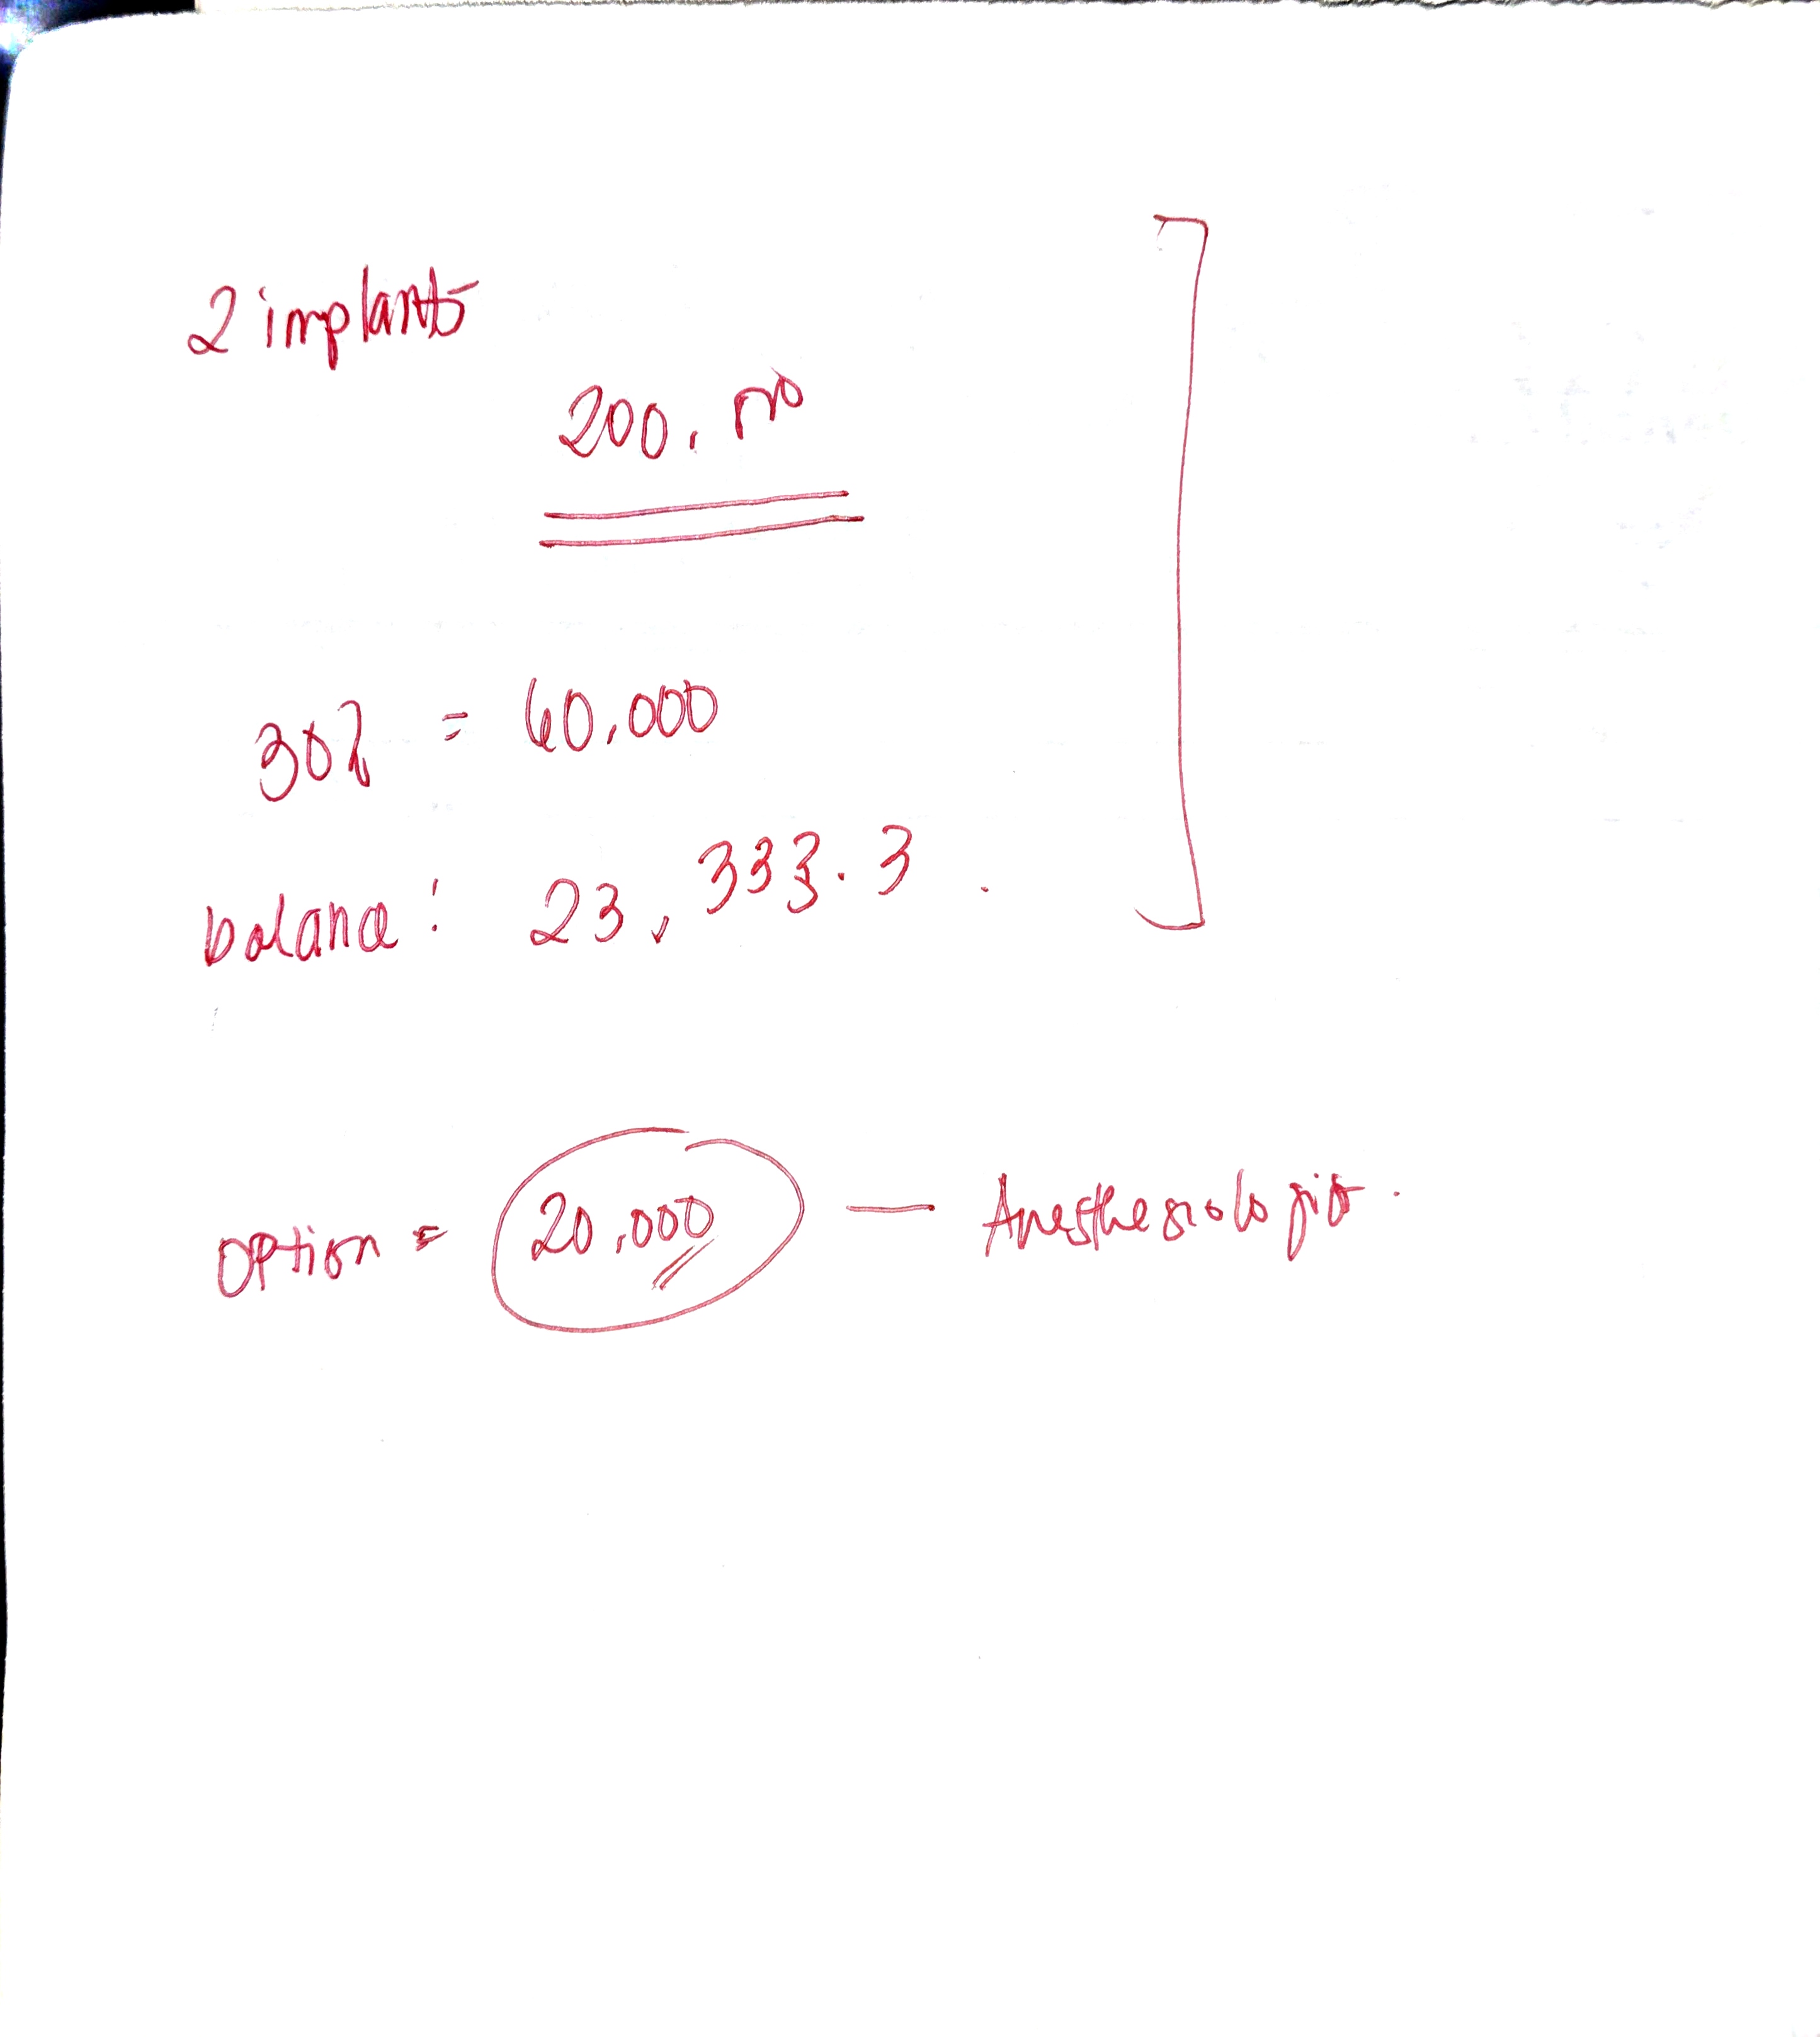 2 implants
200,000
30% = 60,000
balance: 23,333.3.
option = 20,000 — Anesthesiologist.